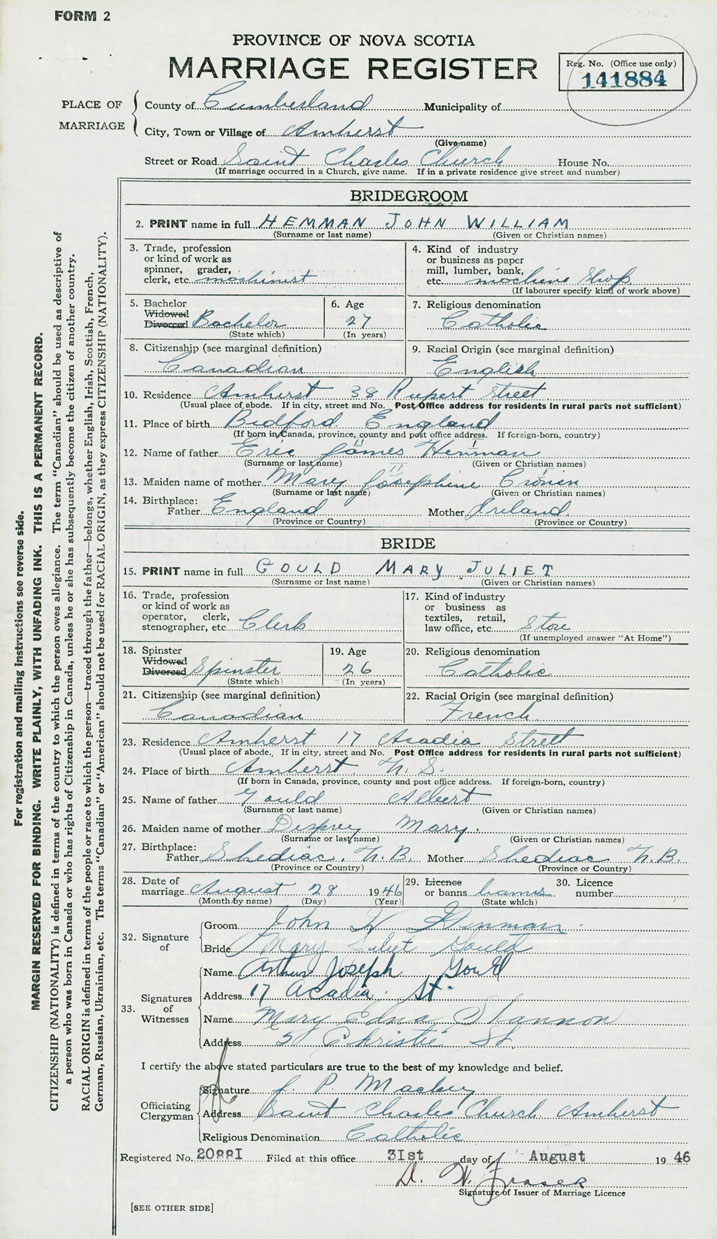 FORM 2
PROVINCE OF NOVA SCOTIA
MARRIAGE REGISTER
Reg. No. (Office use only)
141884
PLACE OF MARRIAGE
County of Cumberland Municipality of
City, Town or Village of Amherst
(Give name)
Street or Road Saint Charles Church House No.
(If marriage occurred in a Church, give name. If in a private residence give street and number)
BRIDEGROOM
2. PRINT name in full HEMMAN JOHN WILLIAM
(Surname or last name) (Given or Christian names)
3. Trade, profession
or kind of work as
spinner, grader,
clerk, etc. machinist
4. Kind of industry
or business as paper
mill, lumber, bank,
etc. machine shop
(If labourer specify kind of work above)
5. Bachelor
Widowed
Divorced Bachelor
(State which)
6. Age
27
(In years)
7. Religious denomination
Catholic
8. Citizenship (see marginal definition)
Canadian
9. Racial Origin (see marginal definition)
English
10. Residence Amherst 38 Rupert Street
(Usual place of abode. If in city, street and No. Post Office address for residents in rural parts not sufficient)
11. Place of birth Bedford England
(If born in Canada, province, county and post office address. If foreign-born, country)
12. Name of father Eric James Henman
(Surname or last name) (Given or Christian names)
13. Maiden name of mother Mary Josephine Cronin
(Surname or last name) (Given or Christian names)
14. Birthplace:
Father England Mother Ireland
(Province or Country) (Province or Country)
BRIDE
15. PRINT name in full GOULD MARY JULIET
(Surname or last name) (Given or Christian names)
16. Trade, profession
or kind of work as
operator, clerk,
stenographer, etc. Clerk
17. Kind of industry
or business as
textiles, retail,
law office, etc. Store
(If unemployed answer "At Home")
18. Spinster
Widowed
Divorced Spinster
(State which)
19. Age
26
(In years)
20. Religious denomination
Catholic
21. Citizenship (see marginal definition)
Canadian
22. Racial Origin (see marginal definition)
French
23. Residence Amherst 17 Acadia Street
(Usual place of abode. If in city, street and No. Post Office address for residents in rural parts not sufficient)
24. Place of birth Amherst N.S.
(If born in Canada, province, county and post office address. If foreign-born, country)
25. Name of father Gould Albert
(Surname or last name) (Given or Christian names)
26. Maiden name of mother Mary
(Surname or last name) (Given or Christian names)
27. Birthplace:
Father Shediac, N.B. Mother Shediac N.B.
(Province or Country) (Province or Country)
28. Date of
marriage August 28 1946
(Month by name) (Day) (Year)
29. Licence
or banns banns
(State which)
30. Licence
number
32. Signature of
Groom John W Henman
Bride Mary Juliet Gould
33. Signatures of Witnesses
Name Arthur Joseph Gould
Address 17 Acadia St.
Name Mary Edna Stannon
Address 5 Christie St.
I certify the above stated particulars are true to the best of my knowledge and belief.
Officiating Clergyman
Signature J P Mackey
Address Saint Charles Church Amherst
Religious Denomination Catholic
Registered No. 2088I Filed at this office 31st day of August 1946
D. W. Fraser
Signature of Issuer of Marriage Licence
[SEE OTHER SIDE]
For registration and mailing instructions see reverse side.
MARGIN RESERVED FOR BINDING. WRITE PLAINLY, WITH UNFADING INK. THIS IS A PERMANENT RECORD.
CITIZENSHIP (NATIONALITY) is defined in terms of the country to which the person owes allegiance. The term "Canadian" should be used as descriptive of
a person who was born in Canada or who has rights of Citizenship in Canada, unless he or she has subsequently become the citizen of another country.
RACIAL ORIGIN is defined in terms of the people or race to which the person—traced through the father—belongs, whether English, Irish, Scottish, French,
German, Russian, Ukrainian, etc. The terms "Canadian" or "American" should not be used for RACIAL ORIGIN, as they express CITIZENSHIP (NATIONALITY).